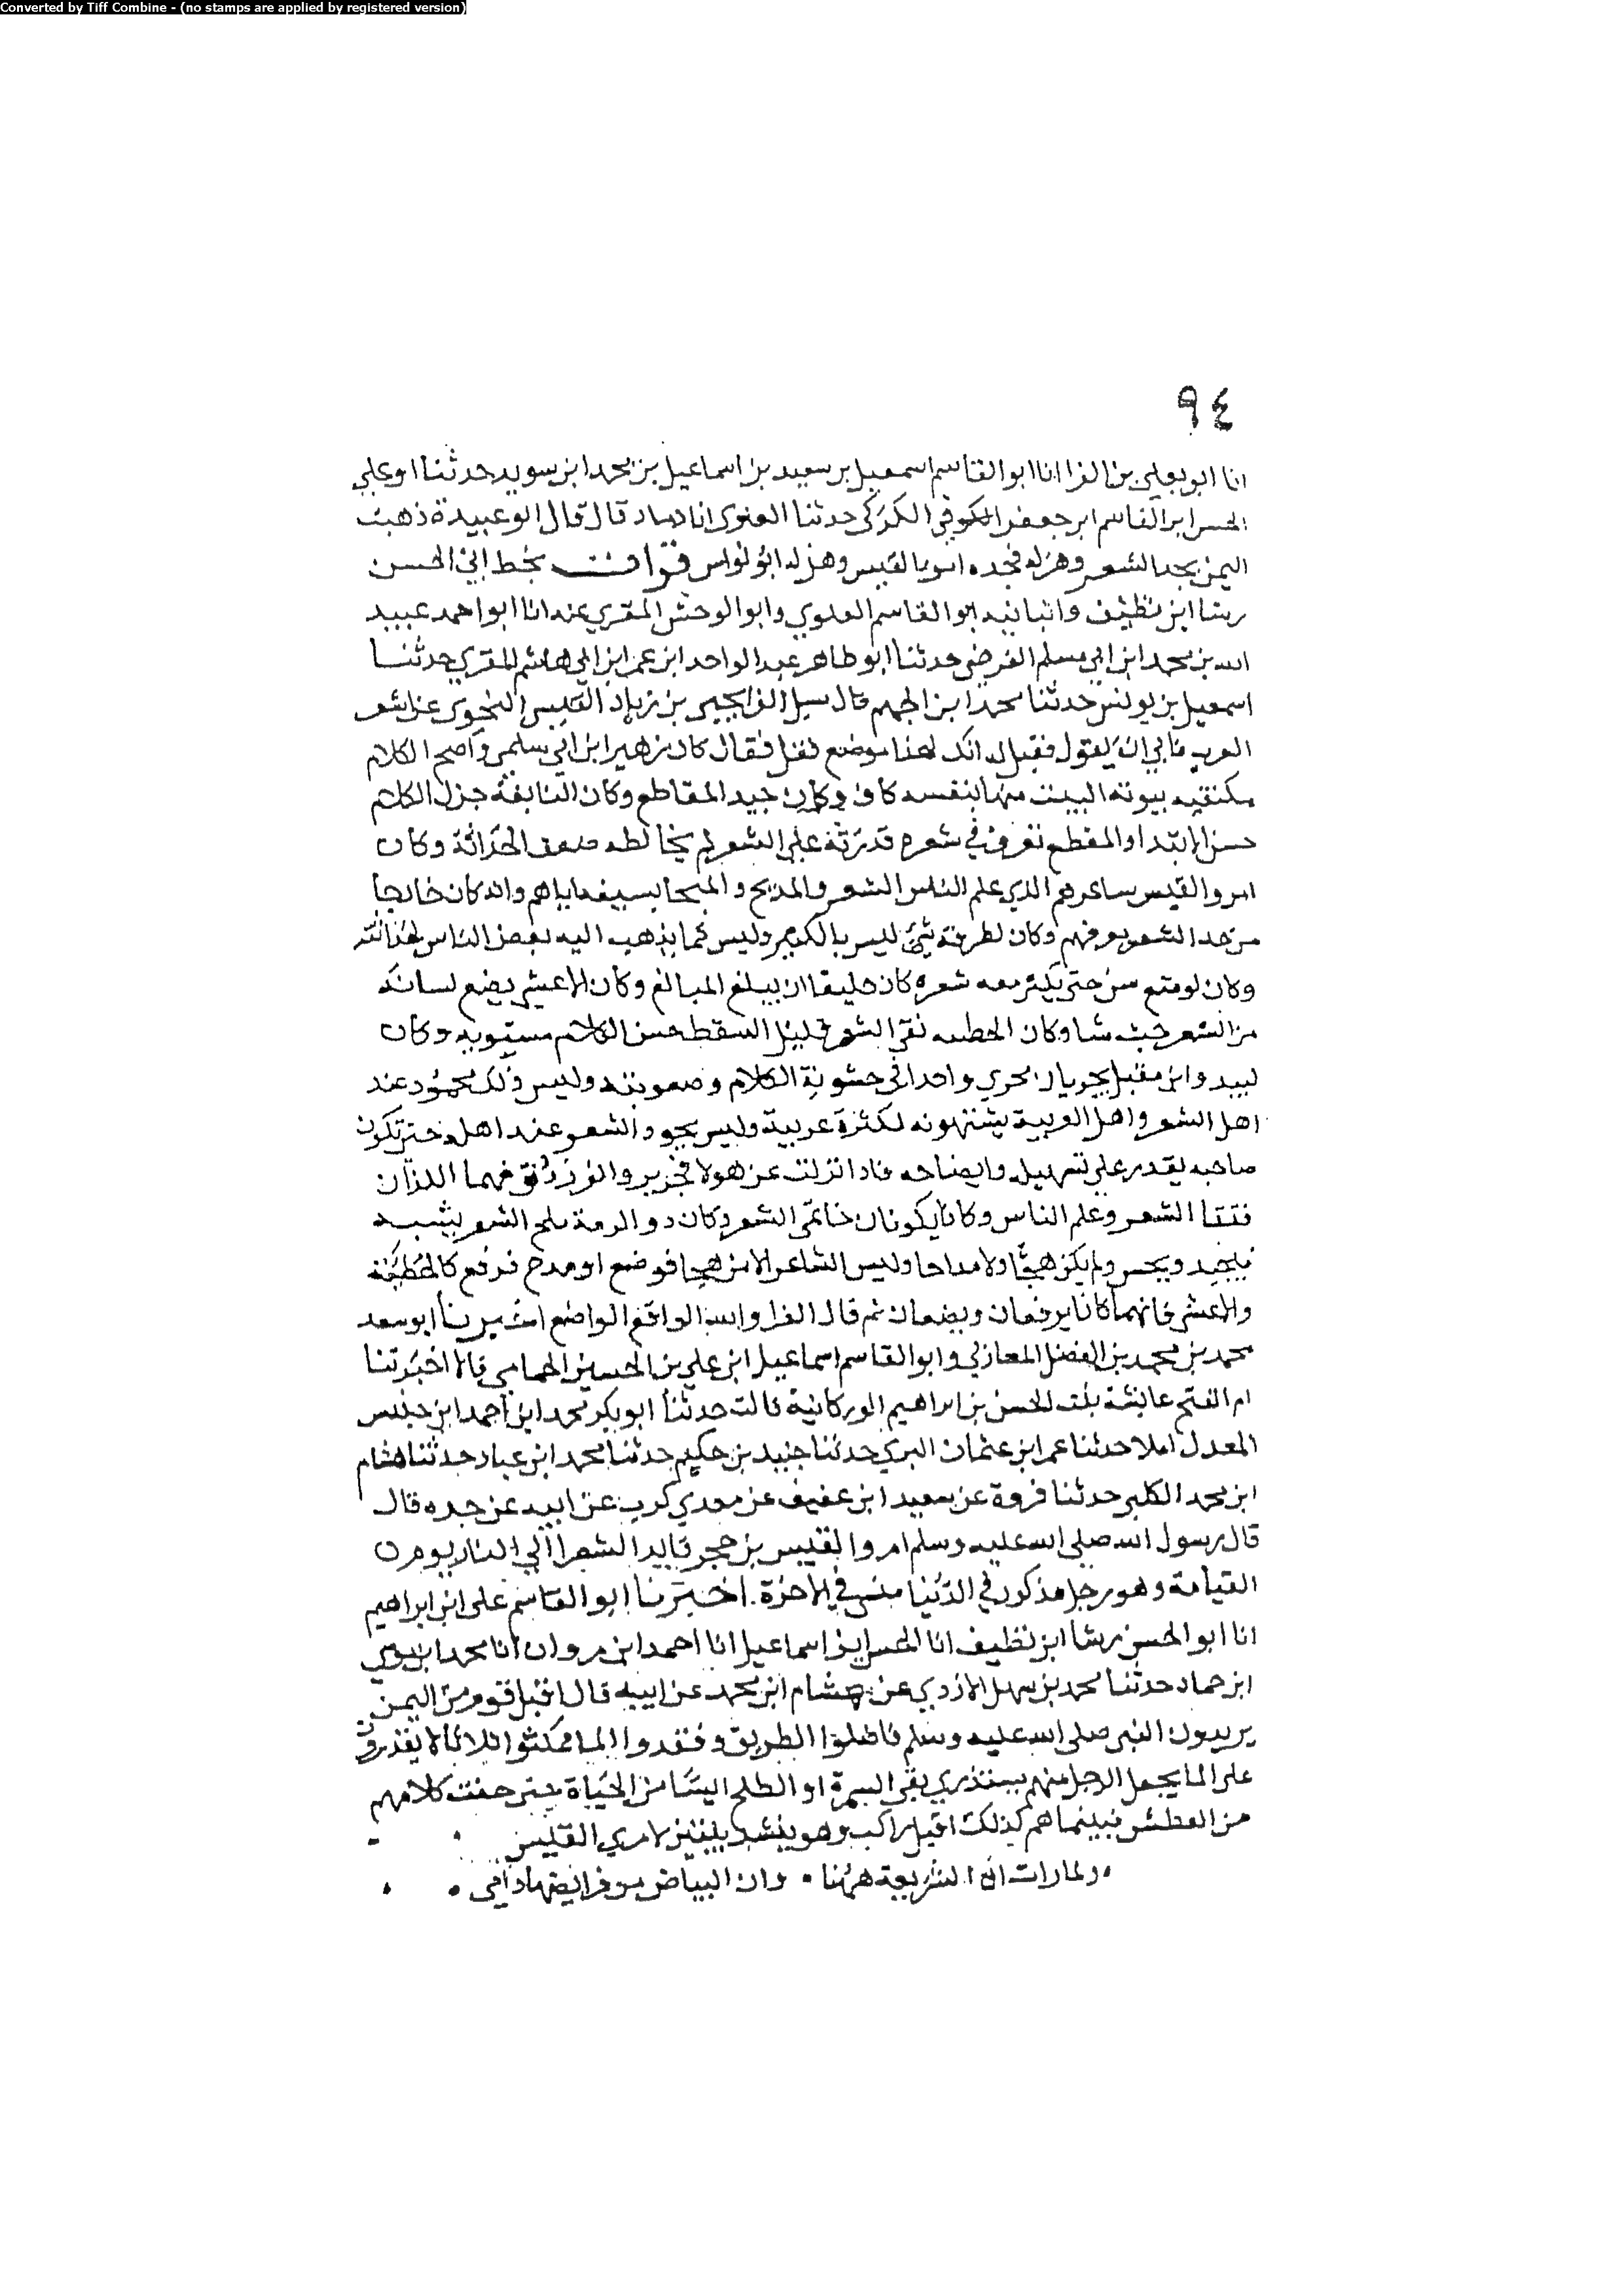 Converted by Tiff Combine - (no stamps are applied by registered version)
٩٤
انا ابو يعلي بن الفرا انا ابو القاسم اسمعيل بن سعيد بن اسماعيل بن محمد ابن سويد حدثنا ابو علي
الحسن ابن القاسم ابن جعفر الكوفي الكوكبي حدثنا العنزي انا دماد قال قال ابو عبيدة ذهبت
اليمن بجد الشعر وهزله فجده امرو القيس وهزله ابو نواس قرات بخط ابي الحسن
رشا ابن نظيف وانبانيه ابو القاسم العلوي وابو الوحش المقري عنه انا ابو احمد عبيد
الله بن محمد ابن ابي مسلم الفرضي حدثنا ابو طاهر عبد الواحد ابن عمر ابن ابي هاشم المقري حدثنا
اسمعيل بن يونس حدثنا محمد ابن الجهم قال سيل الفرا يحيي بن زياد النحوي عن اشعر
العرب فابي ان يقول فقيل له انك لهذا موضع فقل فقال كان زهير ابن ابي سلمى واضح الكلام
مكتفيه بيوته البيت منها بنفسه كاف وكان جيد المقاطع وكان النابغة جزل الكلام
حسن الابتدا والمقطع تعرف في شعره قدرته علي الشعر لم يخالطه ضعف الحداثة وكان
امرو القيس شاعرهم الذي علم الناس الشعر والمديح والهجا بسبقه اياهم وانه كان خارجا
من حد الشعر يعرفهم وكان لطرفة شيئ ليس بالكبير وليس كما يذهب اليه بعض الناس لحداثته
وكان لو متع سن حتى يكثر معه شعره كان خليقا ان يبلغ المبالغ وكان الاعشي يضع لسانه
من الشعر حيث شا وكان الحطيه نقي الشعر قليل السقط حسن الكلام مستويه وكان
لبيد وابن مقبل يجريان مجري واحدا في خشونة الكلام وصعوبته وليس ذلك بمحمود عند
اهل الشعر واهل العربية يشتهونه لكثرة عربية وليس يجود الشعر عند اهله حتى تكون
صاحبه يقدر علي تسهيله وايضاحه فاذا نزلت عن هولا فجرير والفرزدق فهما اللذان
فتقا الشعر وعلم الناس وكادا يكونان خاتمي الشعر وكان ذو الرمة ملح الشعر يشبه
فيجيد ويحسن ولم يكن هجا ولا مداحا وليس الشاعر الا من هجا فوضع او مدح فرفع كالحطيئة
والاعشي فانهما كانا يرفعان ويضعان ثم قال الفرا والله الرافع الواضع اخبرنا ابو سعد
محمد بن محمد بن الفضل المعازلي وابو القاسم اسماعيل ابن علي بن الحسين الحمامي قالا اخبرتنا
ام الفتح عايشة بنت الحسن بن ابراهيم الوركانية قالت حدثنا ابو بكر محمد ابن احمد ابن جشنس
المعدل املا حدثنا عمر ابن عثمان البري حدثنا جنيد بن حكيم حدثنا محمد ابن عباد حدثنا هشام
ابن محمد الكلبي حدثنا فروة عن سعيد ابن عفيف عن معدي كرب عن ابيه عن جده قال
قال رسول الله صلى الله عليه وسلم امرو القيس بن حجر قايد الشعرا الي النار يوم
القيامة وهو رجل مذكور في الدنيا منسي في الاخرة. اخبرنا ابو القاسم على ابن ابراهيم
انا ابو الحسن رشا ابن نظيف انا الحسن ابن اسماعيل انا احمد ابن مروان انا محمد ابن موسي
ابن حماد حدثنا محمد بن سهل الازدي عن هشام ابن محمد عن ابيه قال اقبل قوم من اليمن
يريدون النبي صلى الله عليه وسلم فاضلوا الطريق وفقدوا الما فمكثوا ثلاثا لا يقدرون
على الما يجعل الرجل منهم يستذري بفي السمرة او الطلح اليسا من الحياة حتى خفت كلامهم
من العطش فبينما هم كذلك اقبل راكب وهو ينشد بيتين لامري القيس
ولما رات ان الشريعة همها ۰ وان البياض من فرايضها دامي ۰